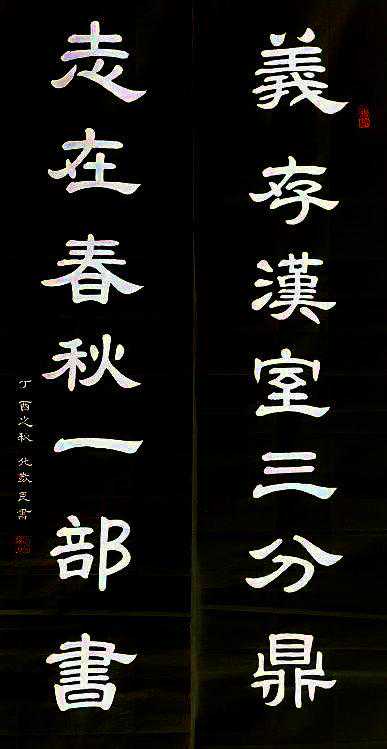 義存漢室三分鼎
志在春秋一部書
丁酉之秋